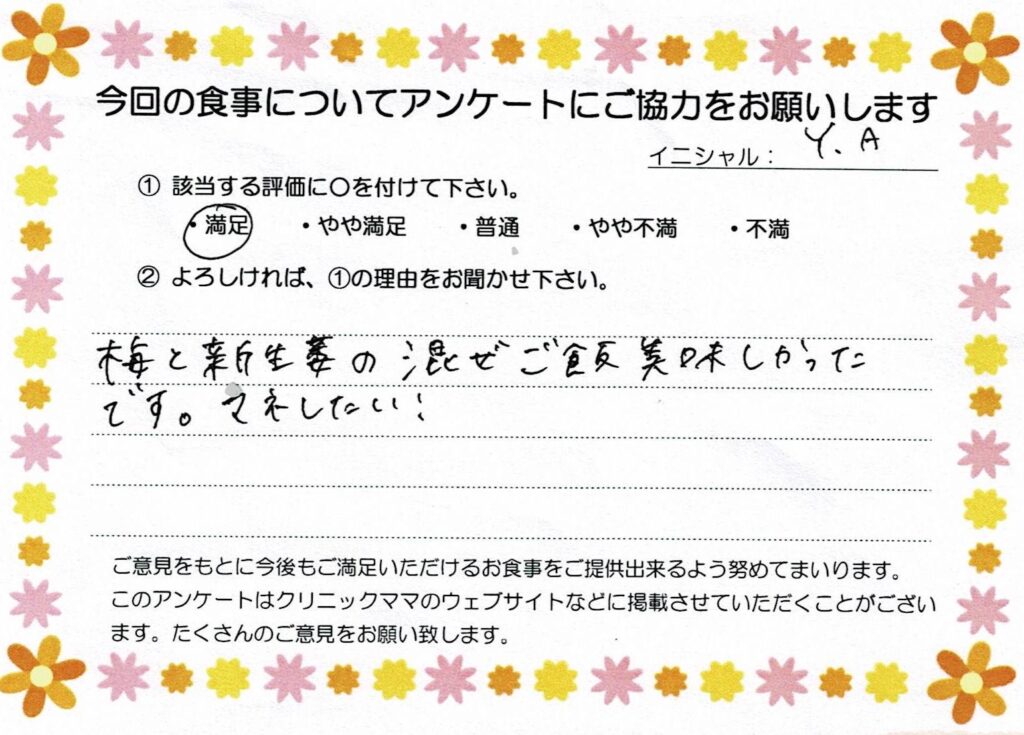 今回の食事についてアンケートにご協力をお願いします
イニシャル： Y. A
① 該当する評価に〇を付けて下さい。
・満足 ・やや満足 ・普通 ・やや不満 ・不満
② よろしければ、①の理由をお聞かせ下さい。
梅と新生姜の混ぜご飯美味しかった
です。マネしたい!
ご意見をもとに今後もご満足いただけるお食事をご提供出来るよう努めてまいります。
このアンケートはクリニックママのウェブサイトなどに掲載させていただくことがござい
ます。たくさんのご意見をお願い致します。